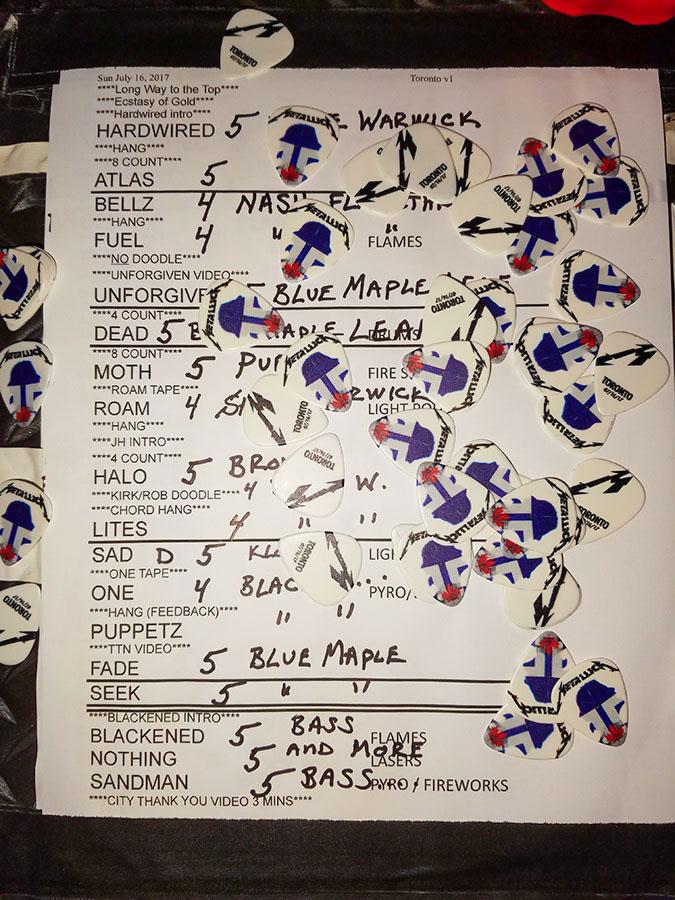 Sun July 16, 2017 Toronto v1
****Long Way to the Top****
****Ecstasy of Gold****
****Hardwired intro****
HARDWIRED 5 WARWICK
****HANG****
****8 COUNT****
ATLAS 5
BELLZ 4 NASH
****HANG****
FUEL 4 " FLAMES
****NO DOODLE****
****UNFORGIVEN VIDEO****
BLUE MAPLE
****4 COUNT****
DEAD 5
****8 COUNT****
MOTH 5 FIRE
****ROAM TAPE****
ROAM 4 LIGHT
****HANG****
****JH INTRO****
****4 COUNT****
HALO 5 W.
****KIRK/ROB DOODLE**** 4
****CHORD HANG****
LITES 4 " "
SAD D 5
****ONE TAPE****
ONE 4 PYRO/
****HANG (FEEDBACK)****
PUPPETZ " "
****TTN VIDEO****
FADE 5 BLUE MAPLE
SEEK 5 " "
****BLACKENED INTRO****
BLACKENED 5 BASS FLAMES
NOTHING 5 AND MORE LASERS
SANDMAN 5 BASS... PYRO / FIREWORKS
****CITY THANK YOU VIDEO 3 MINS****
TORONTO
METALLICA